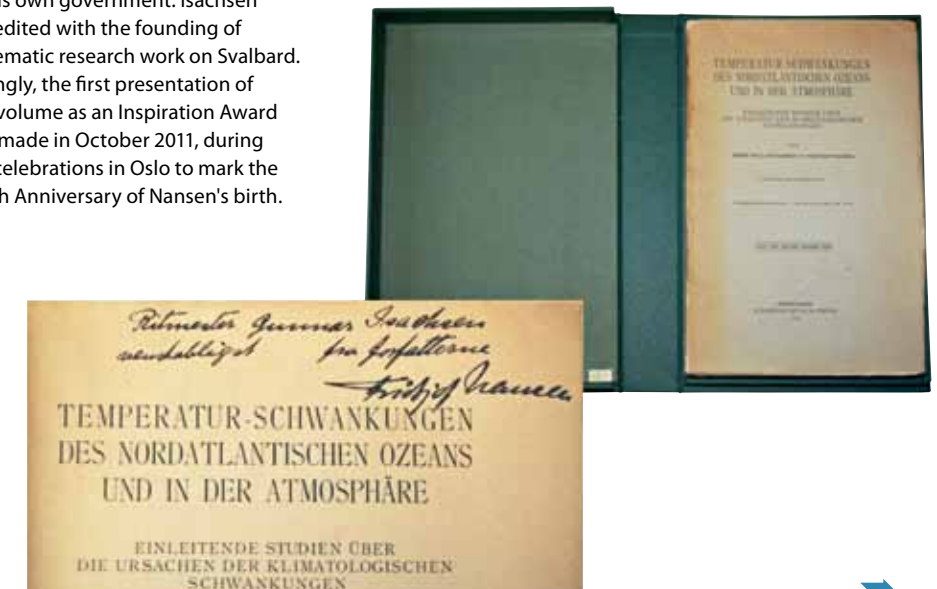 is own government. Isachsen
edited with the founding of
ematic research work on Svalbard.
ngly, the first presentation of
volume as an Inspiration Award
made in October 2011, during
celebrations in Oslo to mark the
h Anniversary of Nansen's birth.
TEMPERATUR-SCHWANKUNGEN
DES NORDATLANTISCHEN OZEANS
UND IN DER ATMOSPHÄRE
EINLEITENDE STUDIEN ÜBER
DIE URSACHEN DER KLIMATOLOGISCHEN
SCHWANKUNGEN
Ritmester Gunnar Isachsen
venskabligst fra forfatterne
Fridtjof Nansen
TEMPERATUR-SCHWANKUNGEN
DES NORDATLANTISCHEN OZEANS
UND IN DER ATMOSPHÄRE
EINLEITENDE STUDIEN ÜBER
DIE URSACHEN DER KLIMATOLOGISCHEN
SCHWANKUNGEN